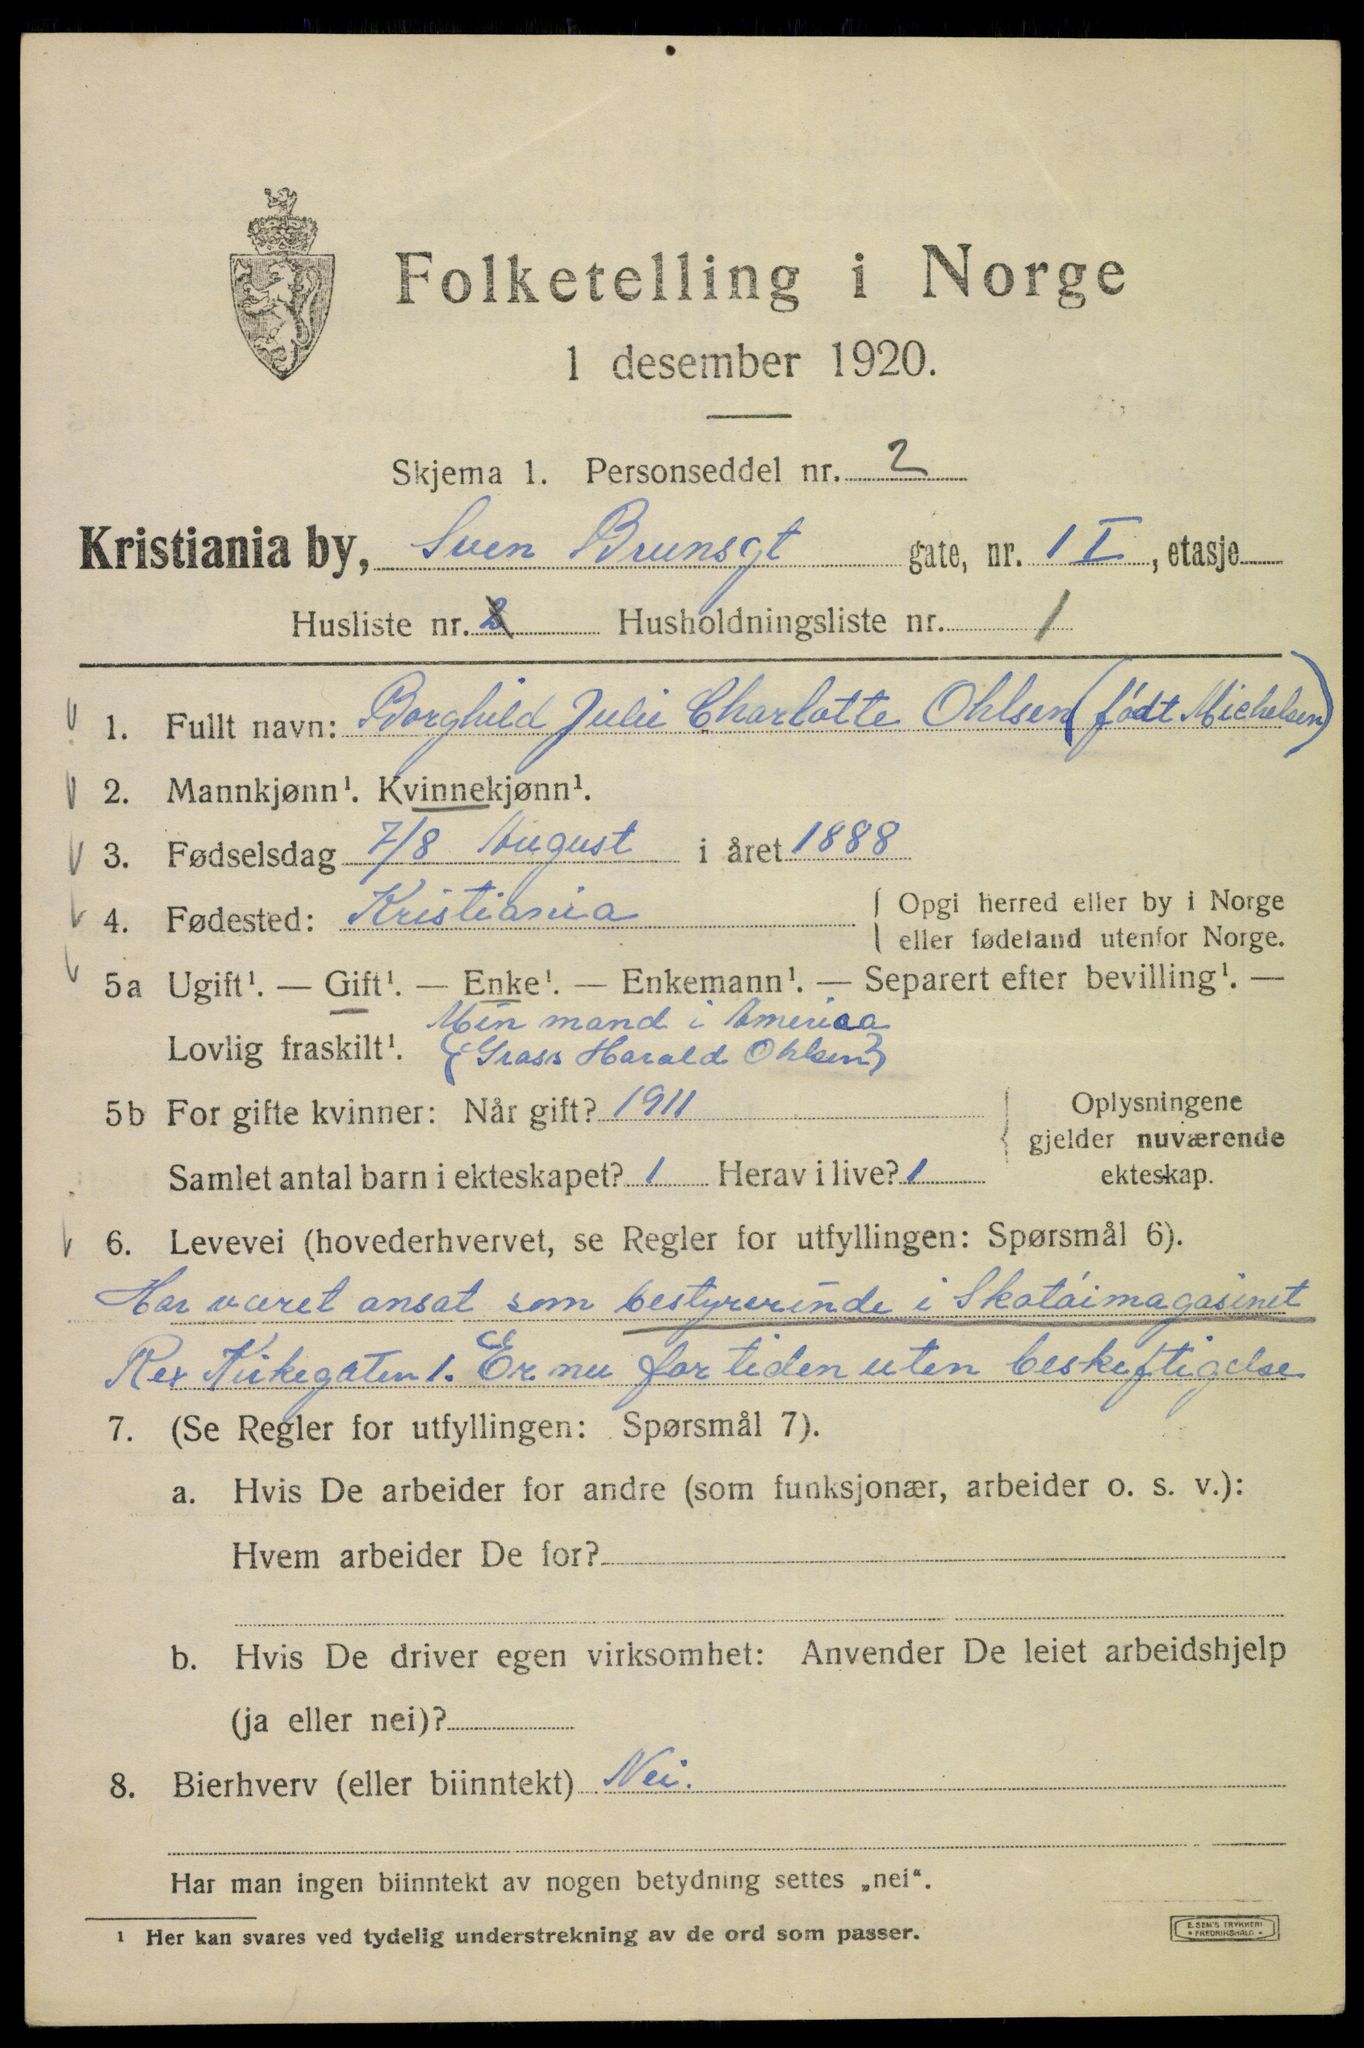 Folketelling i Norge
1 desember 1920.
Skjema 1. Personseddel nr. 2
Kristiania by, Sven Brunsgt gate, nr. 1 I, etasje
Husliste nr. 2 Husholdningsliste nr. 1
1. Fullt navn: Borghild Julie Charlotte Ohlsen (født Michelsen)
2. Mannkjønn¹. Kvinnekjønn¹.
3. Fødselsdag 7/8 August i året 1888
4. Fødested: Kristiania { Opgi herred eller by i Norge
eller fødeland utenfor Norge.
5a Ugift¹. — Gift¹. — Enke¹. — Enkemann¹. — Separert efter bevilling¹. —
Min mand i America
Lovlig fraskilt¹. { Harald Ohlsen}
5b For gifte kvinner: Når gift? 1911
Samlet antal barn i ekteskapet? 1 Herav i live? 1
{ Oplysningene
gjelder nuværende
ekteskap.
6. Levevei (hovederhvervet, se Regler for utfyllingen: Spørsmål 6).
Har været ansat som bestyrerinde i Skotøimagasinet
Rex Kirkegaten 1. Er nu for tiden uten beskeftigelse
7. (Se Regler for utfyllingen: Spørsmål 7).
a. Hvis De arbeider for andre (som funksjonær, arbeider o. s. v.):
Hvem arbeider De for?
b. Hvis De driver egen virksomhet: Anvender De leiet arbeidshjelp
(ja eller nei)?
8. Bierhverv (eller biinntekt) Nei.
Har man ingen biinntekt av nogen betydning settes „nei“.
¹ Her kan svares ved tydelig understrekning av de ord som passer.
E. SEM'S TRYKKERI
* FREDRIKSHALD *